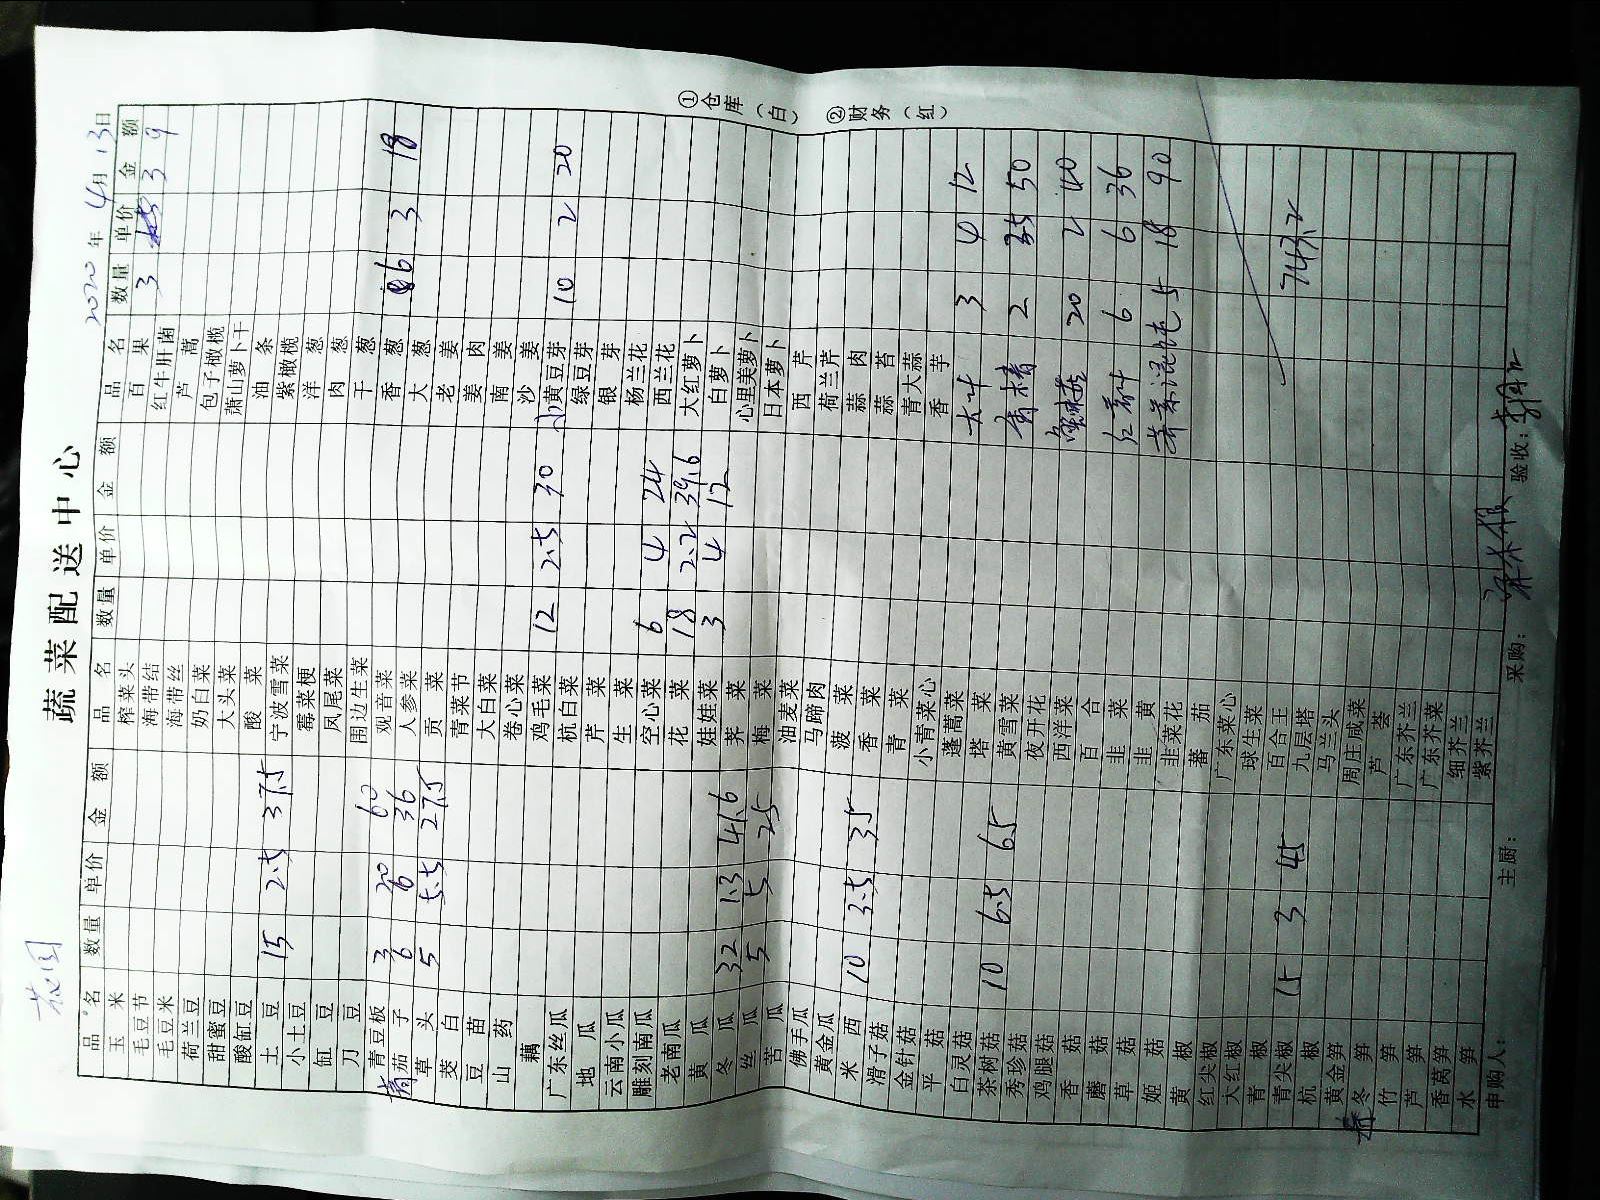 蔬菜配送中心
2020年 4月 13日
品名 数量 单价 金额 品名 数量 单价 金额 品名 数量 单价 金额
玉米 榨菜头 百果 3 3 9
毛豆节 海带结 红牛肝菌
毛豆米 海带丝 芦蒿
荷兰豆 奶白菜 包子橄榄
甜蜜豆 大头菜 萧山萝卜干
酸缸豆 酸菜 油条
土豆 15 2.5 37.5 宁波雪菜 紫橄榄
小土豆 霉菜梗 洋葱
缸豆 凤尾菜 肉葱
刀豆 围边生菜 干葱
青豆板 3 20 60 观音菜 香葱 6 3 18
青茄子 6 6 36 人参菜 大葱
草头 5 5.5 27.5 贡菜 老姜
茭白 青菜节 姜肉
豆苗 大白菜 南姜
山药 卷心菜 沙姜
藕 鸡毛菜 12 2.5 30 小黄豆芽 10 2 20
广东丝瓜 杭白菜 绿豆芽
地瓜 芹菜 银芽
云南小瓜 生菜 杨兰花
雕刻南瓜 空心菜 6 4 24 西兰花
老南瓜 花菜 18 2.2 39.6 大红萝卜
黄瓜 娃娃菜 3 4 12 白萝卜
冬瓜 32 1.3 41.6 荠菜 心里美萝卜
丝瓜 5 5 25 梅菜 日本萝卜
苦瓜 油麦菜 西芹
佛手瓜 马蹄肉 荷兰芹
黄金瓜 菠菜 蒜肉
米西 10 3.5 35 香菜 蒜苔
滑子菇 青菜 青大蒜
金针菇 小青菜心 香芋
平菇 蓬蒿菜 大叶 3 4 12
白灵菇 塔菜
茶树菇 10 6.5 65 黄雪菜 青椿 2 50
秀珍菇 夜开花
鸡腿菇 西洋菜 20 2 40
香菇 百合
蘑菇 韭菜 红苏叶 6 6 36
草菇 韭黄
姬菇 韭菜花 荠菜混沌 5 18 90
黄椒 蕃茄
红尖椒 广东菜心
大红椒 球生菜
青椒 百合王
青尖椒 15 3 45 九层塔 743.2
杭椒 马兰头
黄金笋 周庄咸菜
冬笋 芦荟
竹笋 广东芥兰
芦笋 广东芥菜
香莴笋 细芥兰
水笋 紫芥兰
申购人: 主厨: 采购: 验收:
①仓库（白） ②财务（红）